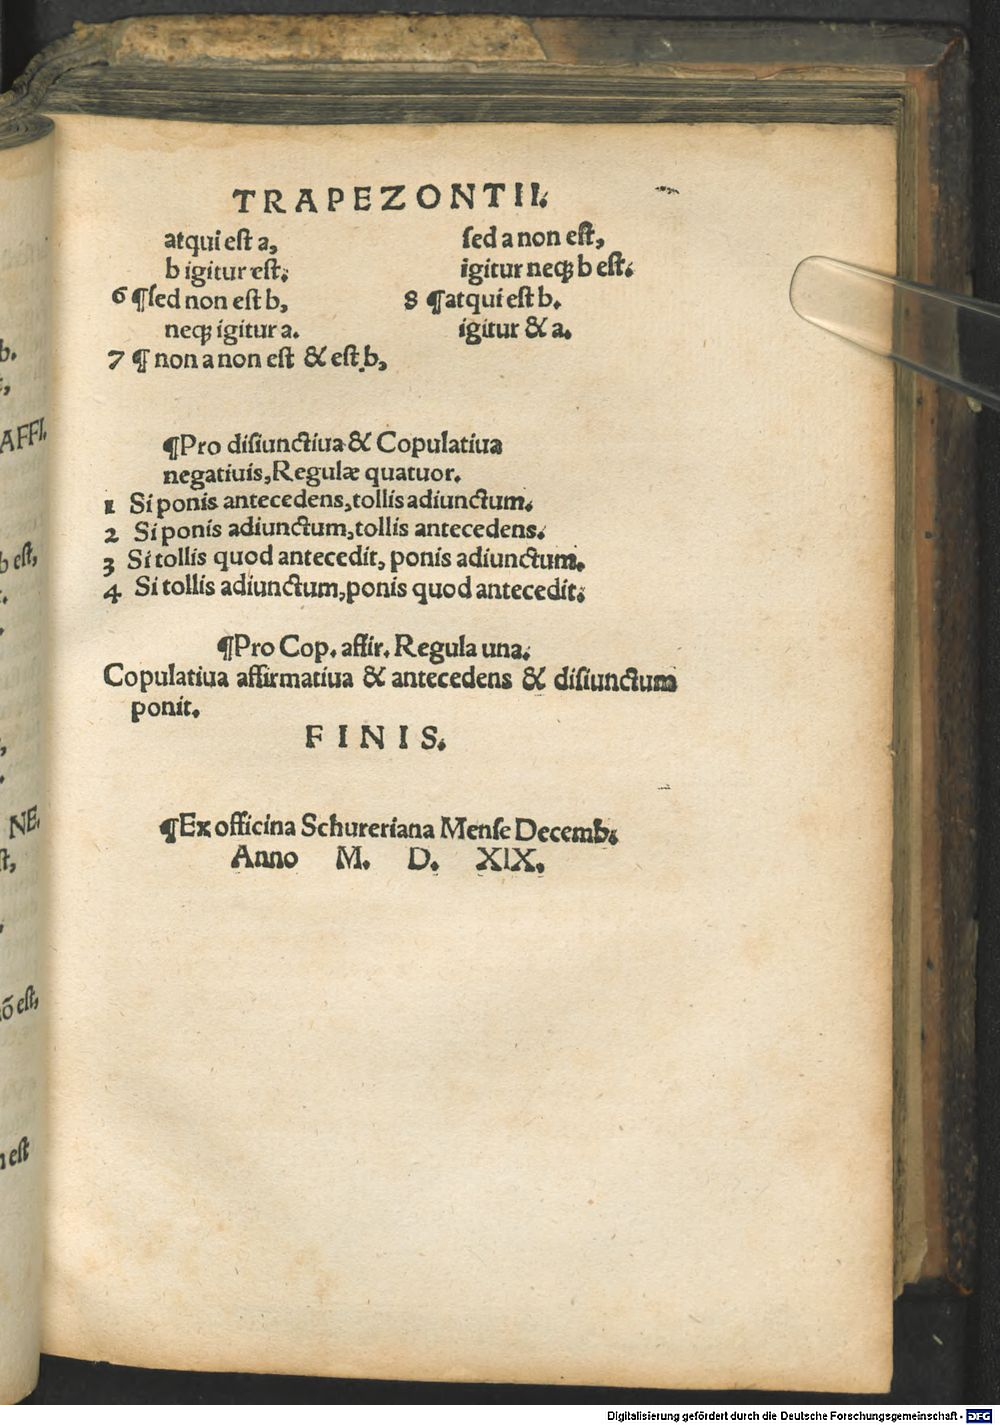 TRAPEZONTII.
atqui est a,
b igitur est.
6 ¶sed non est b,
neq; igitur a.
7 ¶ non a non est & est b,
sed a non est,
igitur neq; b est.
8 ¶atqui est b.
igitur & a.
¶Pro disiunctiua & Copulatiua
negatiuis, Regulæ quatuor.
1 Si ponis antecedens, tollis adiunctum.
2 Si ponis adiunctum, tollis antecedens.
3 Si tollis quod antecedit, ponis adiunctum.
4 Si tollis adiunctum, ponis quod antecedit.
¶Pro Cop. affir. Regula una.
Copulatiua affirmatiua & antecedens & disiunctum
ponit.
FINIS.
¶Ex officina Schureriana Mense Decemb.
Anno M. D. XIX.
b.
AFFI.
b est,
NE.
st,
nō est,
n est
Digitalisierung gefördert durch die Deutsche Forschungsgemeinschaft - DFG